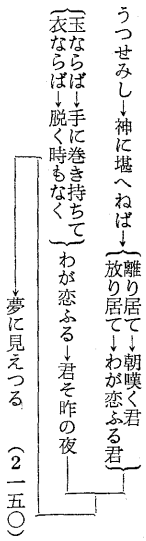 うつせみし→神に堪へねば→
離り居て→朝嘆く君
放り居て→わが恋ふる君
玉ならば→手に巻き持ちて
衣ならば→脱く時もなく
わが恋ふる→君そ昨の夜
→夢に見えつる
(2一五〇)